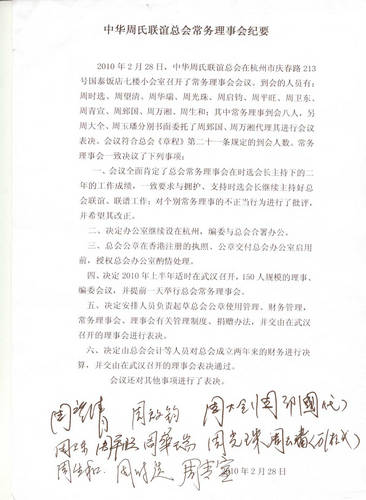 中华周氏联谊总会常务理事会纪要
2010 年 2 月 28 日，中华周氏联谊总会在杭州市庆春路 213
号国泰饭店七楼小会室召开了常务理事会会议。到会的人员有：
周时选、周望清、周华瑞、周光珠、周启钧、周平旺、周卫东、
周青宣、周郅国、周万湘、周生和；其中常务理事到会八人，另
周大全、周玉璠分别书面委托了周郅国、周万湘代理其进行会议
表决。会议符合总会《章程》第二十一条规定的到会人数。常务
理事会一致决议了下列事项：
一、会议全面肯定了总会常务理事会在时选会长主持下的二
年的工作成绩，一致要求与拥护、支持时选会长继续主持好总
会联谊、联谱工作；对个别常务理事的不正当行为进行了批评，
并希望其改正。
二、决定办公室继续设在杭州，编委与总会合署办公。
三、总会公章在香港注册的执照、公章交付总会办公室启用
前，授权总会办公室酌情处理。
四、决定 2010 年上半年适时在武汉召开，150 人规模的理事、
编委会议，并提前一天举行总会常务理事会。
五、决定安排人员负责起草总会公章使用管理、财务管理，
常务理事会、理事会有关管理制度、捐赠办法，并交由在武汉
召开的理事会进行表决。
六、决定由总会会计等人员对总会成立两年来的财务进行决
算，并交由在武汉召开的理事会表决通过。
会议还对其他事项进行了表决。
周望清 周启钧 周大全(周郅國代)
周平旺 周華瑞 周光珠 周玉璠(万湘代)
周生和 周时选 周青宣
2010 年 2 月 28 日